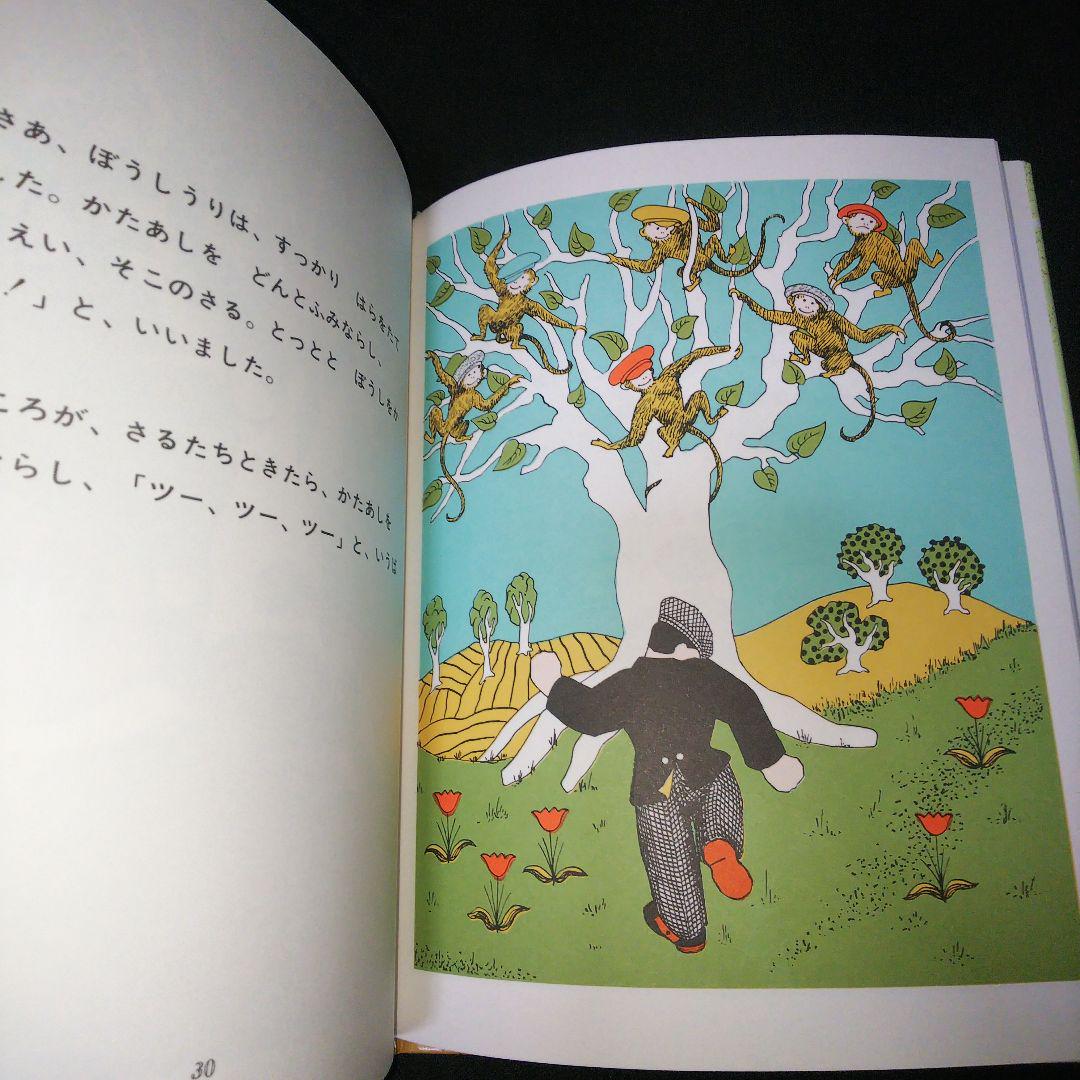 さあ、ぼうしうりは、すっかり はらをたて
した。かたあしを どんとふみならし、
えい、そこのさる。とっとと ぼうしをか
！」と、いいました。
ころが、さるたちときたら、かたあしを
ならし、「ツー、ツー、ツー」と、いうば
30